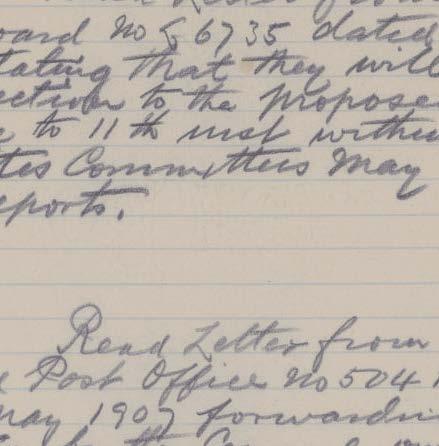 Letter from
oard No G 6735 dated
tating that they will
ection to the propose
e to 11th inst withou
tes Committees May
eports.
Read Letter from
Post Office No 504
may 1907 forwardin